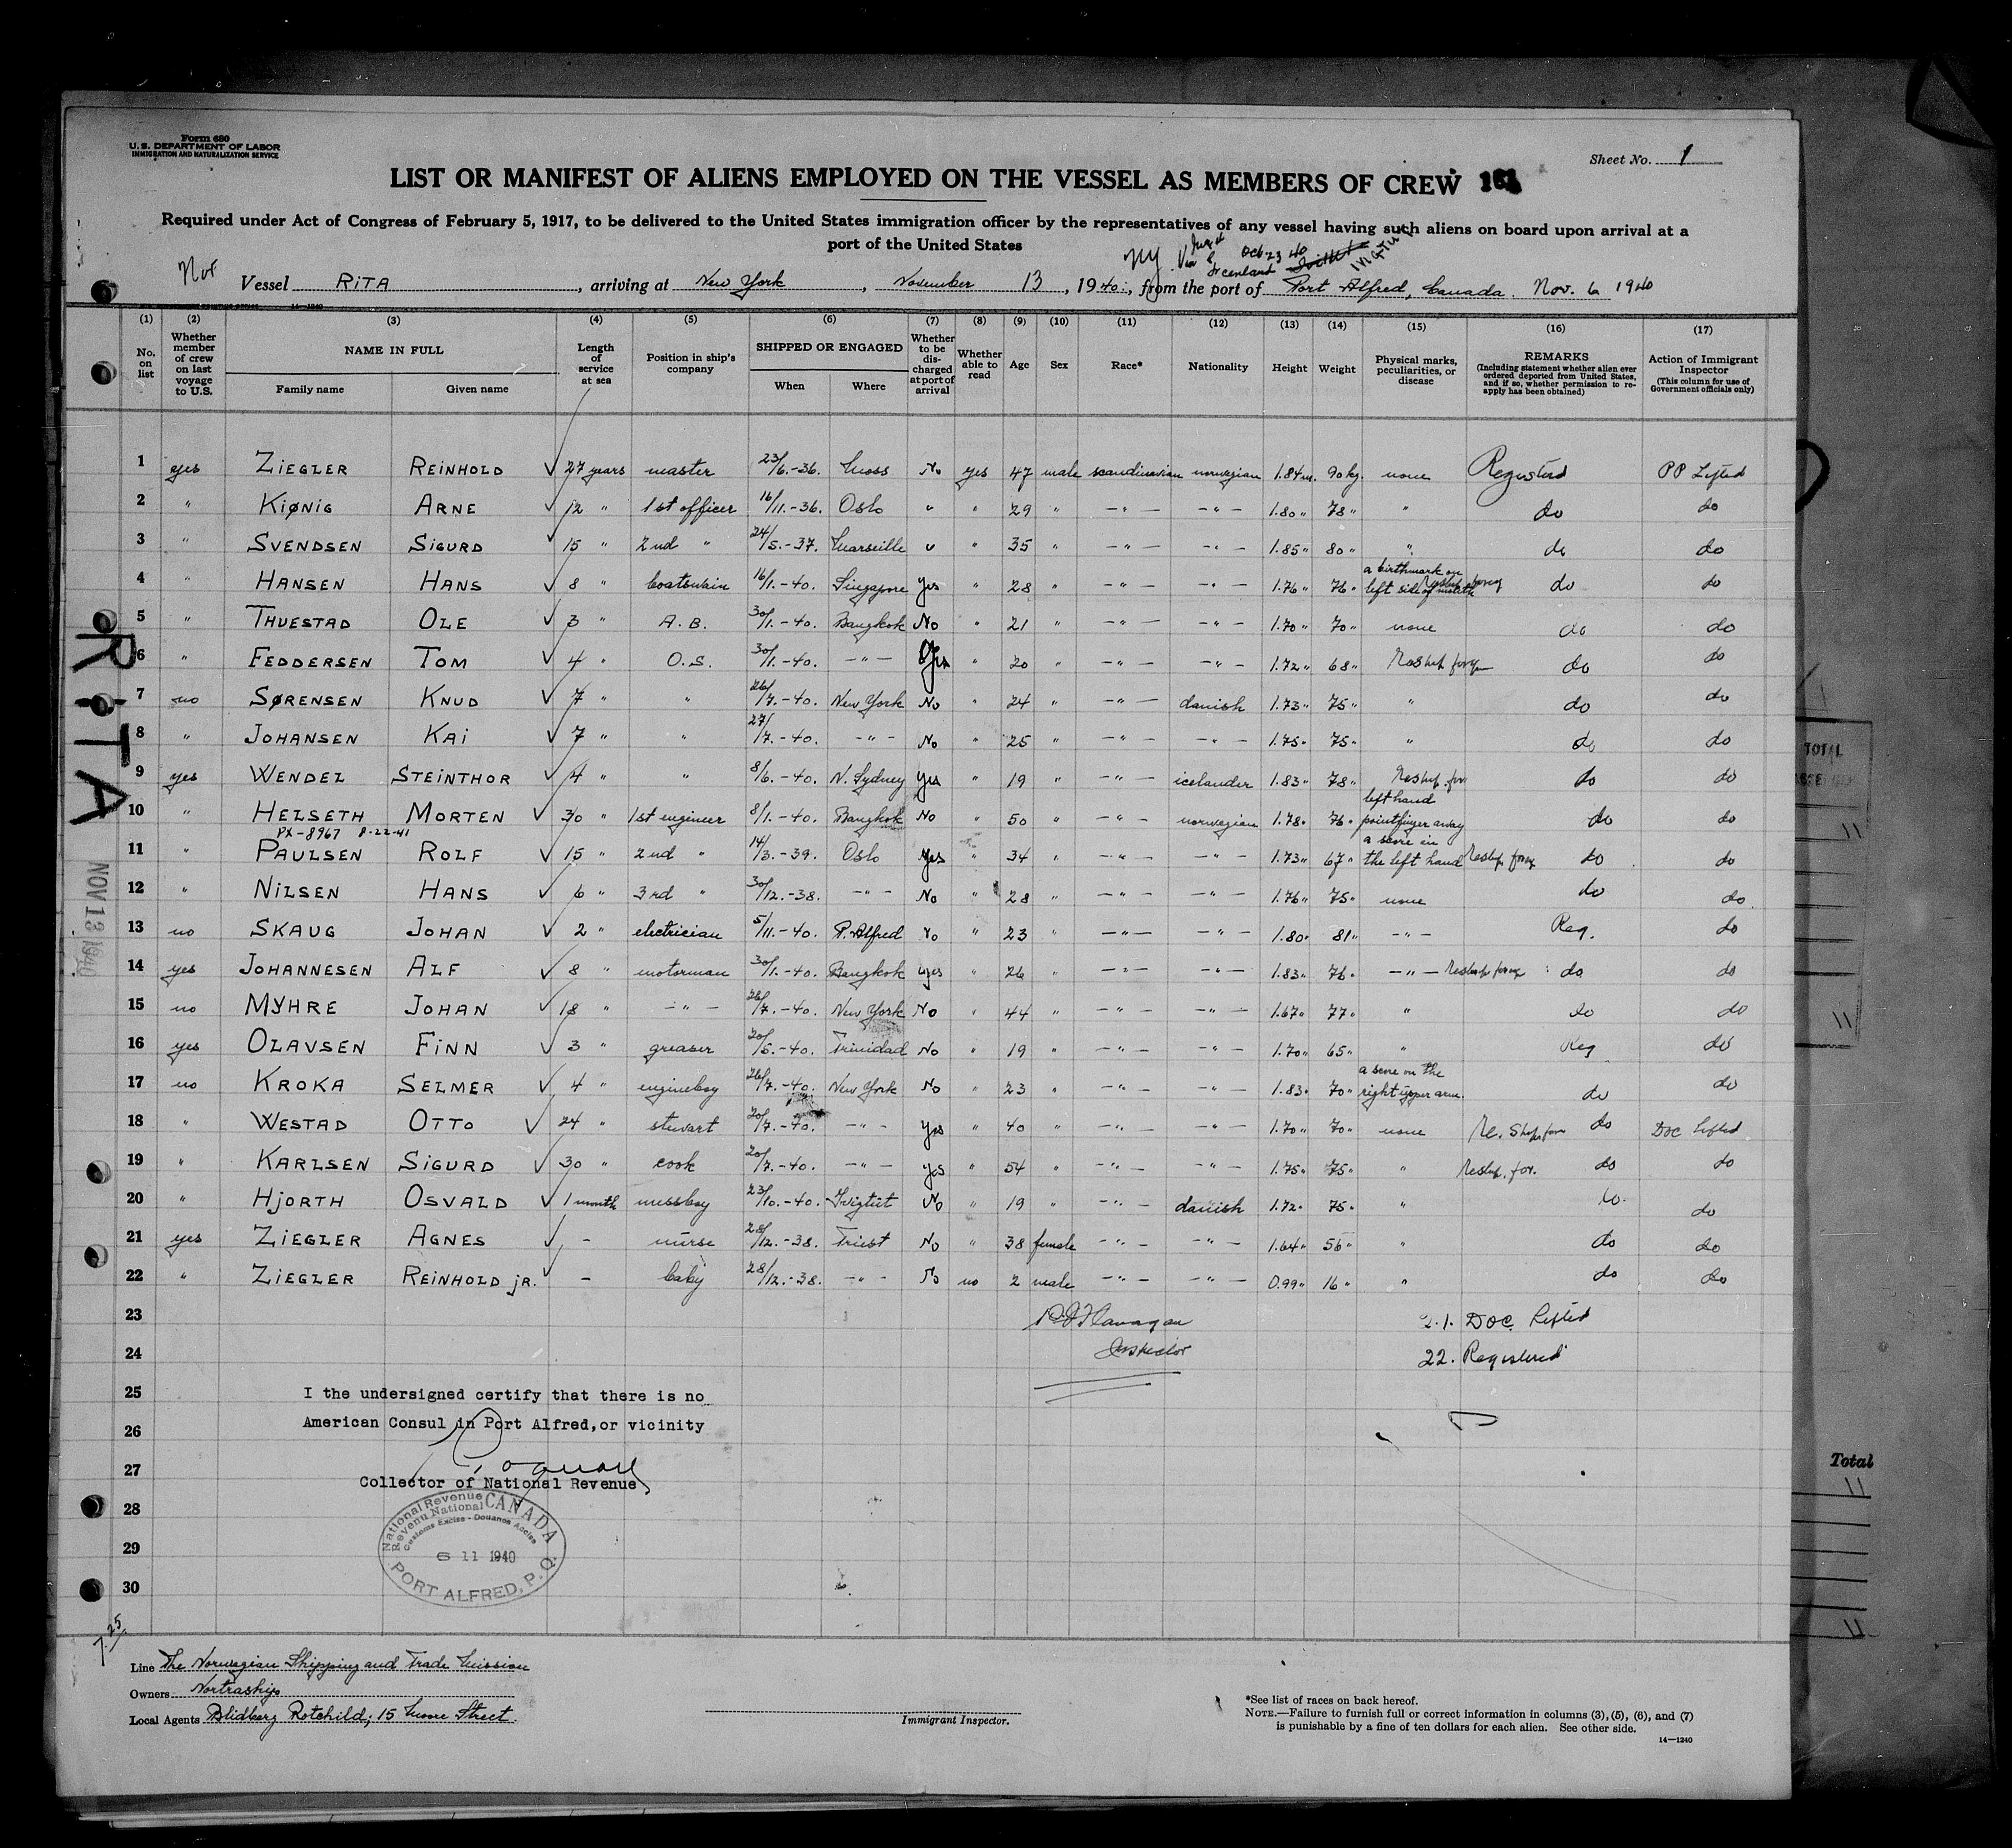 Form 680
U. S. DEPARTMENT OF LABOR
IMMIGRATION AND NATURALIZATION SERVICE
Sheet No. 1
LIST OR MANIFEST OF ALIENS EMPLOYED ON THE VESSEL AS MEMBERS OF CREW
Required under Act of Congress of February 5, 1917, to be delivered to the United States immigration officer by the representatives of any vessel having such aliens on board upon arrival at a
port of the United States
NY. Via Greenland Oct 23 40
Nor Vessel RITA, arriving at New York, November 13, 1940, from the port of Port Alfred, Canada. Nov. 6 1940
(1) (2) (3) (4) (5) (6) (7) (8) (9) (10) (11) (12) (13) (14) (15) (16) (17)
No. on list
Whether member of crew on last voyage to U.S.
NAME IN FULL
Family name Given name
Length of service at sea
Position in ship's company
SHIPPED OR ENGAGED
When Where
Whether to be discharged at port of arrival
Whether able to read
Age
Sex
Race*
Nationality
Height
Weight
Physical marks, peculiarities, or disease
REMARKS
(Including statement whether alien ever ordered deported from United States, and if so, whether permission to reapply has been obtained)
Action of Immigrant Inspector
(This column for use of Government officials only)
1 yes ZIEGLER REINHOLD 27 years master 23/6.-36. Moss No yes 47 male scandinavian norwegian 1.84 m. 90 kg. none Registered PP Lifted
2 " KIØNIG ARNE 12 " 1st officer 16/11.-36. Oslo " " 29 " -"- -"- 1.80 " 78 " " do do
3 " SVENDSEN SIGURD 15 " 2nd " 24/5.-37. Marseille " " 35 " -"- -"- 1.85 " 80 " " do do
4 " HANSEN HANS 8 " boatswain 16/1.-40. Singapore yes " 28 " -"- -"- 1.76 " 76 " a birthmark on left side of mouth do do
5 " THUESTAD OLE 3 " A.B. 30/1.-40. Bangkok No " 21 " -"- -"- 1.70 " 70 " none do do
6 " FEDDERSEN TOM 4 " O.S. 30/1.-40. -"- Yes " 20 " -"- -"- 1.72 " 68 " Reship forgn do do
7 no SØRENSEN KNUD 7 " " 26/7.-40. New York No " 24 " -"- danish 1.73 " 75 " " do do
8 " JOHANSEN KAI 7 " " 27/7.-40. -"- No " 25 " -"- -"- 1.75 " 75 " " do do
9 yes WENDEL STEINTHOR 4 " " 8/6.-40. N. Sydney yes " 19 " -"- icelander 1.83 " 78 " Reship. for do do
10 " HELSETH MORTEN 30 " 1st engineer 8/1.-40. Bangkok No " 50 " -"- norwegian 1.78 " 76 " left hand pointfinger away do do
PX-8967 8-22-41
11 " PAULSEN ROLF 15 " 2nd " 14/3.-39. Oslo yes " 34 " -"- -"- 1.73 " 67 " a score in the left hand Reship forgn do do
12 " NILSEN HANS 6 " 3rd " 30/12.-38. -"- No " 28 " -"- -"- 1.76 " 75 " none do do
13 no SKAUG JOHAN 2 " electrician 5/11.-40. P. Alfred No " 23 " -"- -"- 1.80 " 81 " -"- Reg. do
14 yes JOHANNESEN ALF 8 " motorman 30/1.-40. Bangkok yes " 26 " -"- -"- 1.83 " 76 " -"- Reship forgn do do
15 no MYHRE JOHAN 18 " -"- 26/7.-40. New York No " 44 " -"- -"- 1.67 " 77 " " do do
16 yes OLAVSEN FINN 3 " greaser 20/5.-40. Trinidad No " 19 " -"- -"- 1.70 " 65 " " Reg do
17 no KROKA SELMER 4 " engineboy 26/7.-40. New York No " 23 " -"- -"- 1.83 " 70 " a score on the right upper arm. do do
18 " WESTAD OTTO 24 " stuvart 20/7.-40. -"- yes " 40 " -"- -"- 1.70 " 70 " none Re. Ship for do Doc Lifted
19 " KARLSEN SIGURD 30 " cook 20/7.-40. -"- yes " 54 " -"- -"- 1.75 " 75 " " Reship. for. do do
20 " HJORTH OSVALD 1 month messboy 23/10.-40. Ivigtut No " 19 " -"- danish 1.72 " 75 " " do do
21 yes ZIEGLER AGNES - nurse 28/12.-38. Triest No " 38 female -"- -"- 1.64 " 56 " " do do
22 " ZIEGLER REINHOLD JR. - baby 28/12.-38. -"- No no 2 male -"- -"- 0.99 " 16 " " do do
23 Flanagan 21. DOC. Lifted
24 Inspector 22. Registered
25 I the undersigned certify that there is no
26 American Consul in Port Alfred, or vicinity
27 Collector of National Revenue
28
29
30
National Revenue CANADA
Revenu National
Customs Excise - Douanes Accise
6 11 1940
PORT ALFRED, P. Q.
RITA
NOV 13 1940
7.25
Line The Norwegian Shipping and Trade Mission
Owners Nortraship
Local Agents Blidberg Rotchild; 15 Moore Street.
Immigrant Inspector.
*See list of races on back hereof.
NOTE.—Failure to furnish full or correct information in columns (3), (5), (6), and (7)
is punishable by a fine of ten dollars for each alien. See other side.
14—1240
TOTAL
11
11
Total
11
11